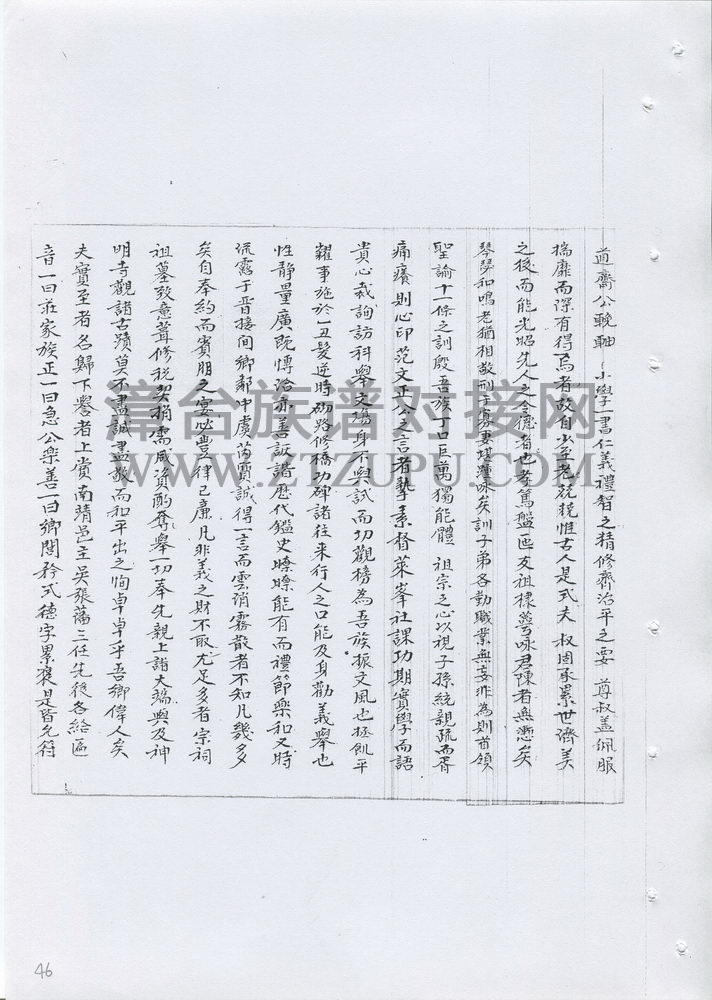 道齋公輓軸 小學一書仁義禮智之精修齊治平之要 尊叔盖佩服
揣靡而深有得焉者故自少至老兢兢惟古人是式夫 叔固承累世濟美
之後而能光昭先人之令德者也孝篤盤匜友祖棣萼咏君陳者無憖矣
琴瑟和鳴老猶相敬刑于寡妻堪薦咏矣訓子弟各勤職業無妄非為則首領
聖諭十一條之訓殷吾族丁口巨萬獨能體 祖宗之心以視子孫統親疏而胥
痛癢則心印范文正公之言者摯素督萊峯社課功期實學而語
貴心裁詢訪科舉文場身不與試而切觀榜為吾族振文風也拯飢平
糶事施於一丑髮逆時砌路修橋功碑諸往来行人之口能及身勸義舉也
性静量廣既博洽亦善詼諧歷代鑑史瞭瞭能有而禮節樂和又時
流露于晋接間鄉鄰中虞芮質誠得一言而雲消霧散者不知凡幾多
矣自奉約而賓朋之宴必豐律己廉凡非義之財不取尤足多者宗祠
祖墓致意葺修税契捐需咸資酌奪舉一切奉先親上諸大端與及神
明寺觀諸古蹟莫不盡誠盡敬而和平出之洵卓卓乎吾鄉偉人矣
夫實至者名歸下譽者上賞南靖邑主吳張藩三任先後各給匾
音一曰莊家族正一曰急公樂善一曰鄉閭矜式德字累褒是皆允符
46
漳台族谱对接网
WWW.ZTZUPU.COM